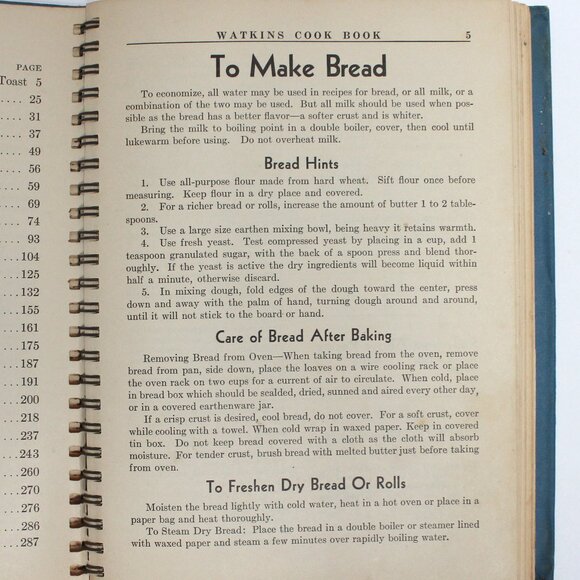 PAGE
Toast 5
.... 25
.... 31
.... 37
.... 49
.... 56
.... 59
.... 69
.... 74
.... 93
... 104
... 125
... 132
... 155
... 161
... 175
... 187
... 191
... 200
... 218
... 237
... 243
... 260
... 270
... 276
... 286
... 287
WATKINS COOK BOOK 5
To Make Bread
To economize, all water may be used in recipes for bread, or all milk, or a
combination of the two may be used. But all milk should be used when pos-
sible as the bread has a better flavor—a softer crust and is whiter.
Bring the milk to boiling point in a double boiler, cover, then cool until
lukewarm before using. Do not overheat milk.
Bread Hints
1. Use all-purpose flour made from hard wheat. Sift flour once before
measuring. Keep flour in a dry place and covered.
2. For a richer bread or rolls, increase the amount of butter 1 to 2 table-
spoons.
3. Use a large size earthen mixing bowl, being heavy it retains warmth.
4. Use fresh yeast. Test compressed yeast by placing in a cup, add 1
teaspoon granulated sugar, with the back of a spoon press and blend thor-
oughly. If the yeast is active the dry ingredients will become liquid within
half a minute, otherwise discard.
5. In mixing dough, fold edges of the dough toward the center, press
down and away with the palm of hand, turning dough around and around,
until it will not stick to the board or hand.
Care of Bread After Baking
Removing Bread from Oven—When taking bread from the oven, remove
bread from pan, side down, place the loaves on a wire cooling rack or place
the oven rack on two cups for a current of air to circulate. When cold, place
in bread box which should be scalded, dried, sunned and aired every other day,
or in a covered earthenware jar.
If a crisp crust is desired, cool bread, do not cover. For a soft crust, cover
while cooling with a towel. When cold wrap in waxed paper. Keep in covered
tin box. Do not keep bread covered with a cloth as the cloth will absorb
moisture. For tender crust, brush bread with melted butter just before taking
from oven.
To Freshen Dry Bread Or Rolls
Moisten the bread lightly with cold water, heat in a hot oven or place in a
paper bag and heat thoroughly.
To Steam Dry Bread: Place the bread in a double boiler or steamer lined
with waxed paper and steam a few minutes over rapidly boiling water.